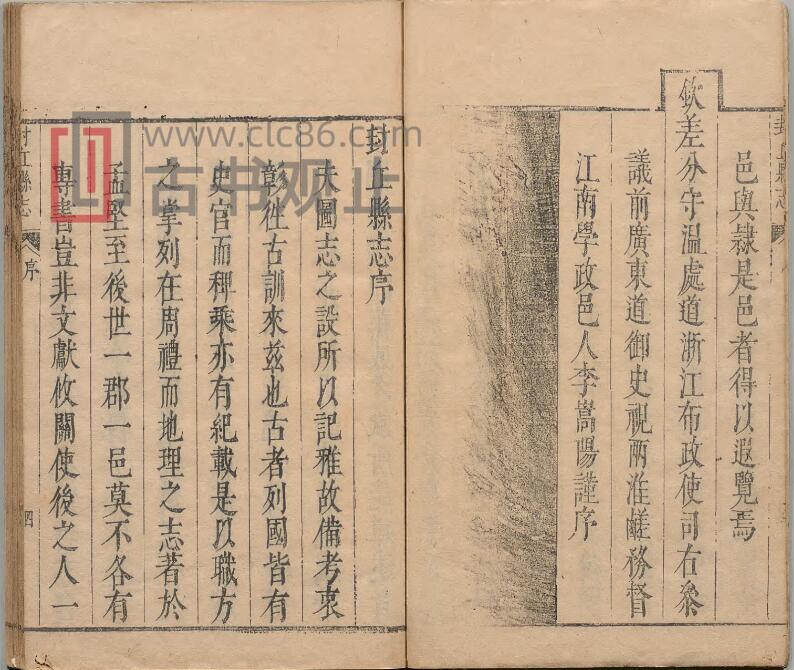 封丘縣志
邑與隸是邑者得以遐覽焉
欽差分守溫處道浙江布政使司右叅
議前廣東道御史視兩淮鹺務督
江南學政邑人李嵩陽謹序
封丘縣志序
夫圖志之設所以記雅故備考衷
彰徃古訓來茲也古者列國皆有
史官而稗乘亦有紀載是以職方
之掌列在周禮而地理之志著於
孟堅至後世一郡一邑莫不各有
專書豈非文獻攸關使後之人一
封丘縣志
序
四
www.clc86.com
古书观止